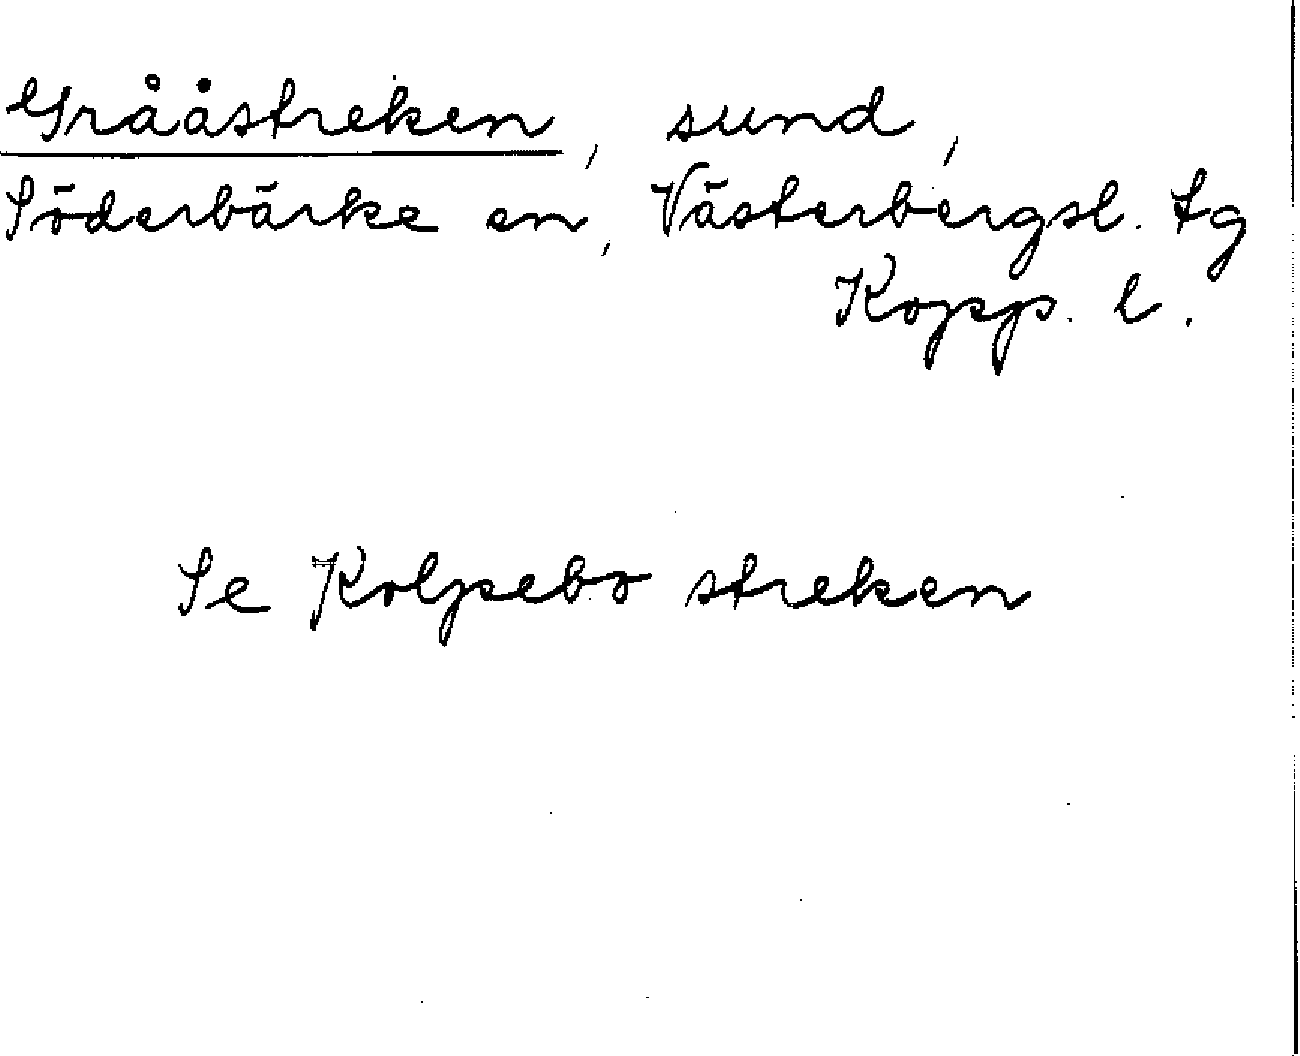 Grååstreken, sund,
Söderbärke sn, Västerbergsl. tg
Kopp. l.
Se Kolpebo streken